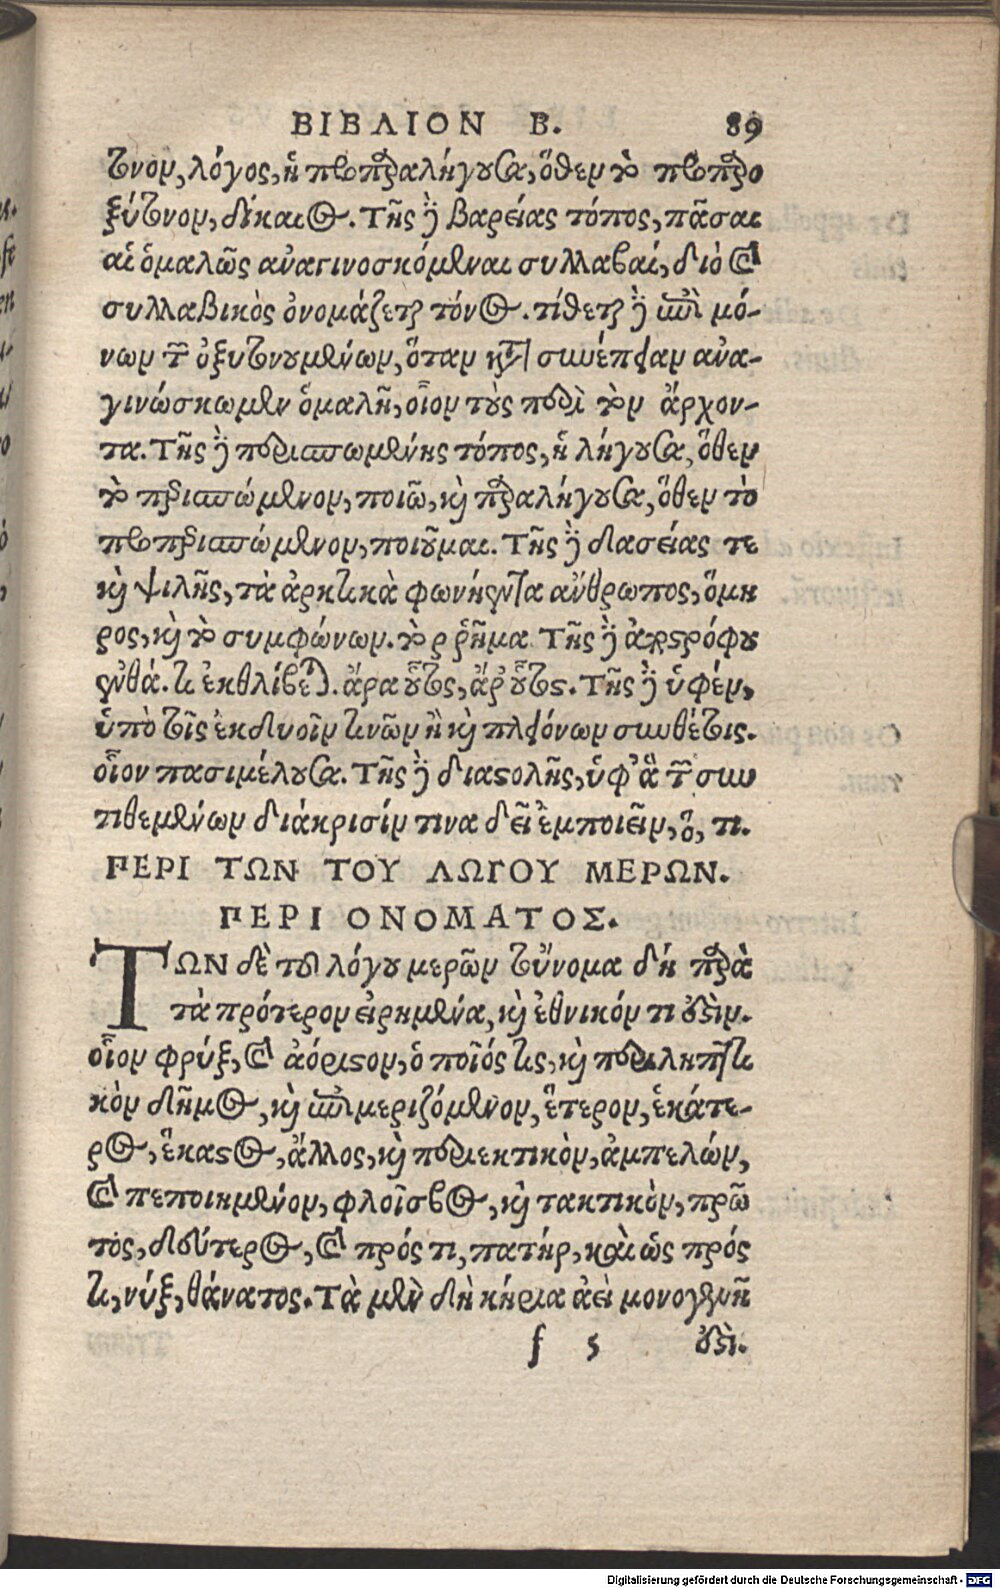 ΒΙΒΛΙΟΝ Β. 89
τονον, λόγος, ἢ προπαραλήγουσα, ὅθεν τὸ προπαρο
ξύτονον, δίκαιος. Τῆς δὲ βαρείας τόπος, πᾶσαι
αἱ ὁμαλῶς ἀναγινοσκόμεναι συλλαβαί, διὸ καὶ
συλλαβικὸς ὀνομάζεται τόνος. τίθεται δὲ ἐπὶ μό-
νων τῶν ὀξυτονουμένων, ὅταν κατὰ συνέπειαν ἀνα-
γινώσκωμεν ὁμαλῆ, οἷον τοὺς περὶ τὸν ἄρχον-
τα. Τῆς δὲ περισπωμένης τόπος, ἡ λήγουσα, ὅθεν
τὸ περισπώμενον, ποιῶ, καὶ παραλήγουσα, ὅθεν τὸ
προπερισπώμενον, ποιοῦμαι. Τῆς δὲ δασείας τε
καὶ ψιλῆς, τὰ ἀρκτικὰ φωνήεντα ἄνθρωπος, ὅμη
ρος, καὶ τὸ συμφώνων. τὸ ρ ῥῆμα Τῆς δὲ ἀποστρόφου
ἔνθά. τι ἐκθλίβεται. ἄρα οὗτος, ἄρ οὗτος. Τῆς δὲ ὑφέν,
ὑπὸ τοῖς ἐκ δυοῖν τινῶν ἢ καὶ πλειόνων συνθέτοις.
οἷον πασιμέλουσα. Τῆς δὲ διαστολῆς, ὑφ' ἃ τῶν συν
τιθεμένων διάκρισίν τινα δεῖ ἐμποιεῖν, ὅ, τι.
ΠΕΡΙ ΤΩΝ ΤΟΥ ΛΩΓΟΥ ΜΕΡΩΝ.
ΠΕΡΙ ΟΝΟΜΑΤΟΣ.
ΤΩΝ δὲ τοῦ λόγου μερῶν τοὔνομα δὴ παρὰ
τὰ πρότερον εἰρημένα, καὶ ἐθνικόν τι ἐστὶν.
οἷον φρύξ, καὶ ἀόριστον, ὁ ποῖός τις, καὶ περιληπτι
κὸν δῆμος, καὶ ἐπιμεριζόμενον, ἕτερον, ἑκάτε-
ρος, ἕκαστος, ἄλλος, καὶ περιεκτικὸν, ἀμπελών,
καὶ πεποιημένον, φλοῖσβος, καὶ τακτικὸν, πρῶ
τος, δεύτερος, καὶ πρός τι, πατήρ, καὶ ὡς πρός
τι, νύξ, θάνατος. Τὰ μὲν δὴ κύρια ἀεὶ μονογενῆ
f 5 ἐστὶ.
Digitalisierung gefördert durch die Deutsche Forschungsgemeinschaft - DFG